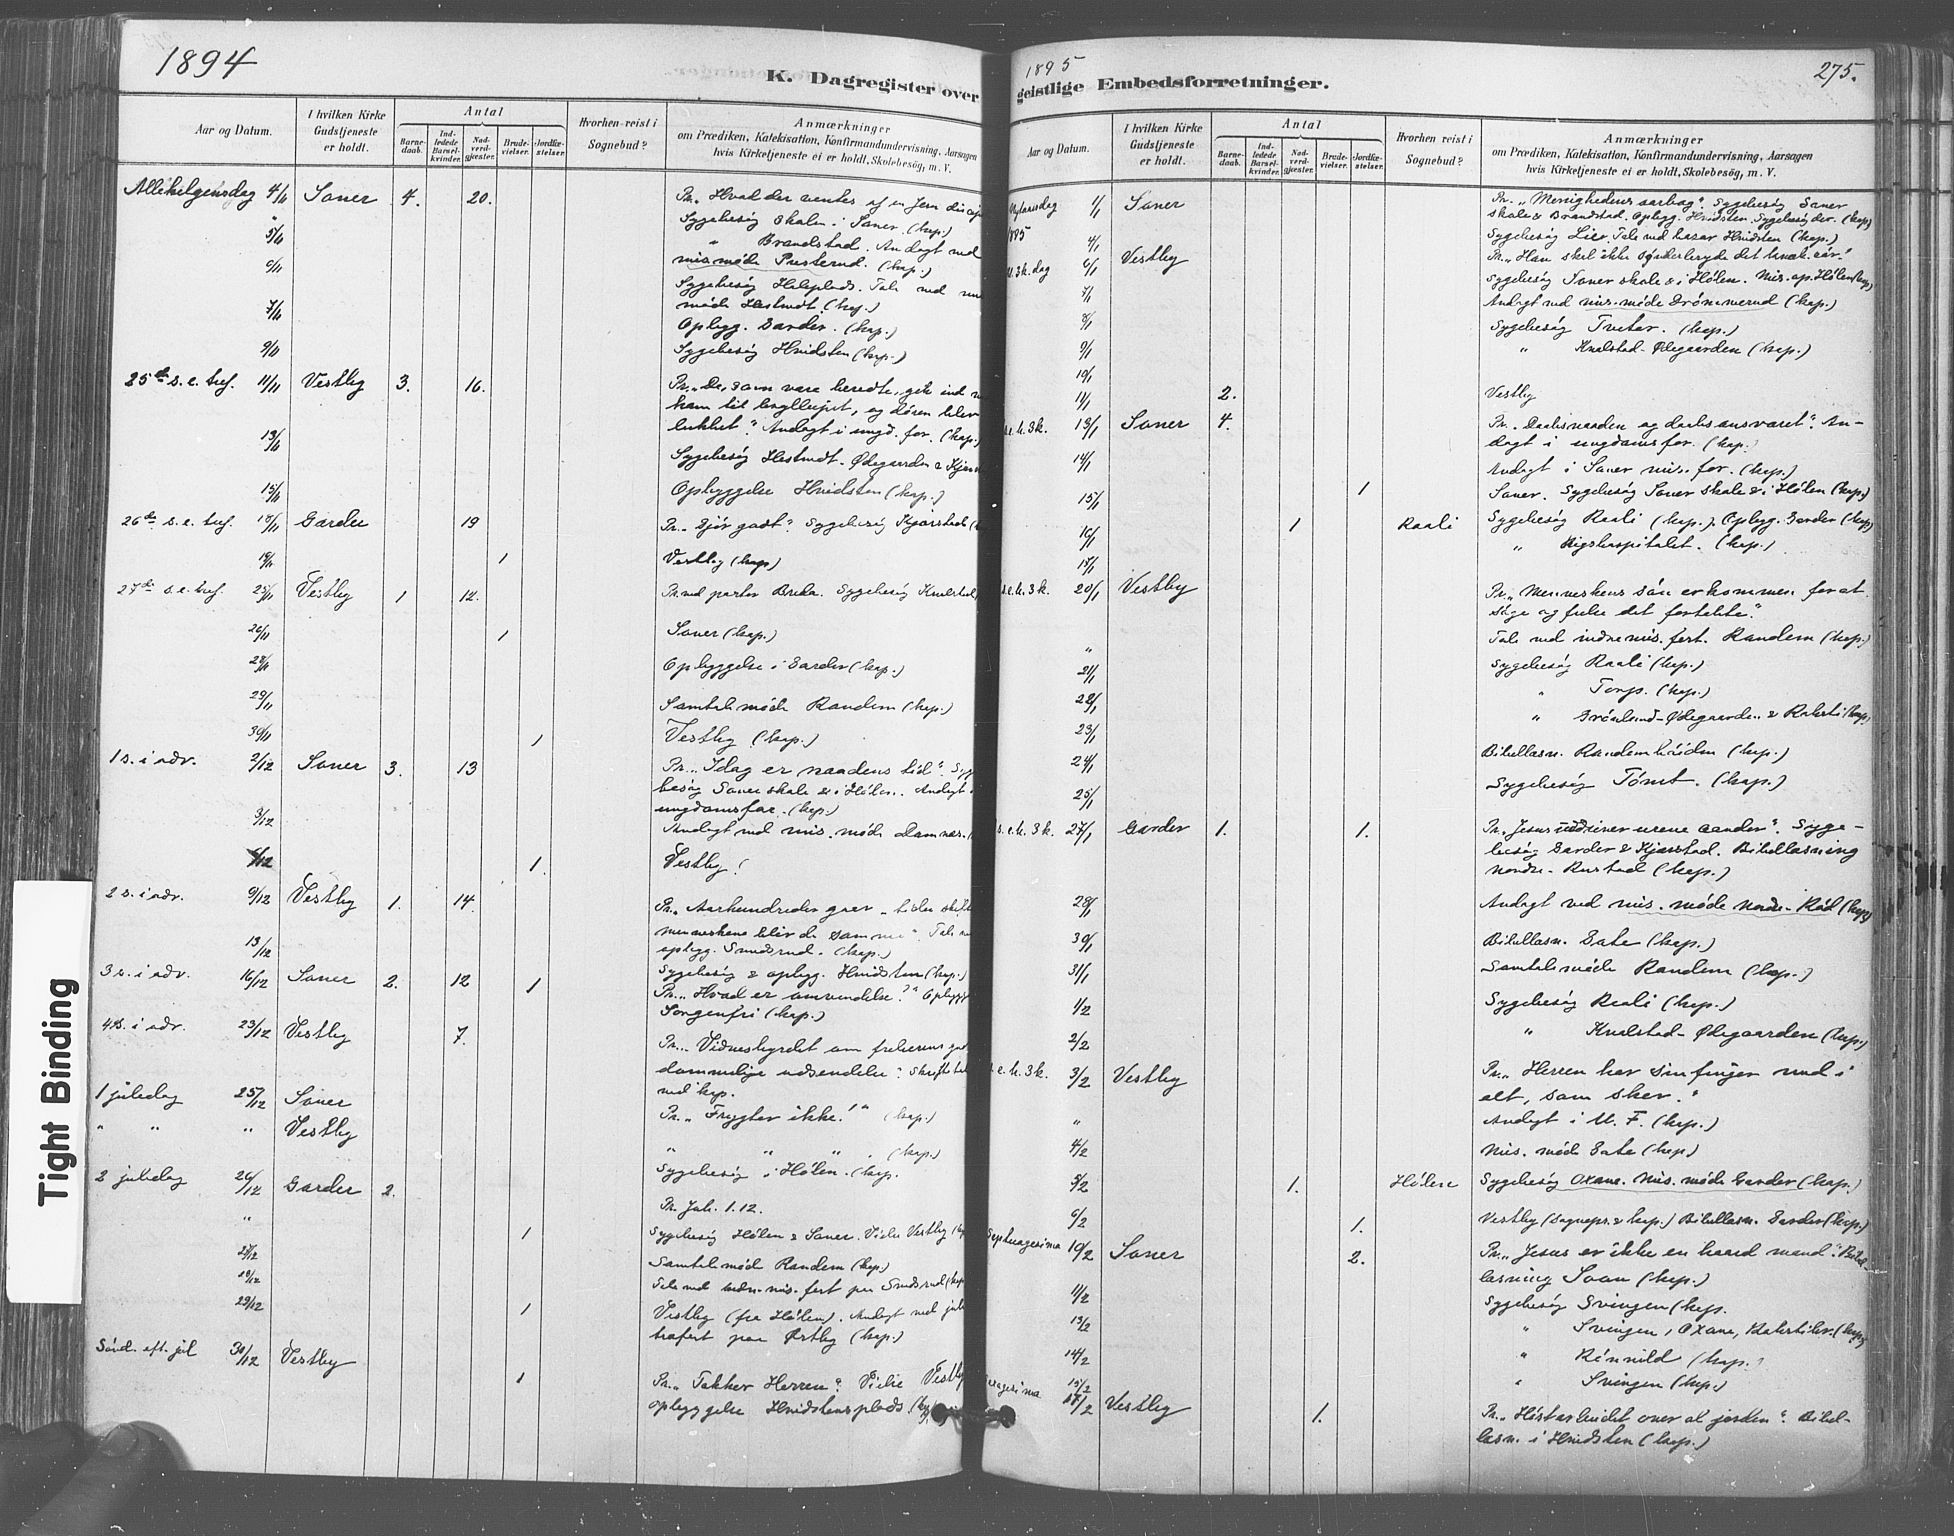 1894
K. Dagregister over
Aar og Datum.
I hvilken Kirke Gudstjeneste er holdt.
Antal
Barnedaab.
Indledede Barselkvinder.
Nadverdgjester.
Brudevielser.
Jordfæstelser.
Hvorhen reist i Sognebud?
Anmærkninger
om Prædiken, Katekisation, Konfirmandundervisning, Aarsagen
hvis Kirketjeneste ei er holdt, Skolebesøg, m. V.
Allehelgensdag 4/11 Soner 4. 20. Pr. „Hvad der ventes af en Jesu
Sygebesög Skolen i Soner (kap.)
5/11 " Brandstad. Andagt ved
mis. möde Pusterud. (kap.)
6/11 Sygebesög Huleplads. Tale ved
möde Hestmdt. (kap.)
7/11 Opbygg. Garder. (kap.)
9/11 Sygebesög Hvidsten (kap.)
25de s. e. tref. 11/11 Vestby 3. 16. Pr. „De, som vare beredte, gik ind
ham til bryllupet, og dören blev
lukket". Andagt i ungd. for. (kap.)
13/11 Sygebesög Hestmdt. Ödegaarden &
15/11 Opbyggelse Hvidsten (kap.)
26de s. e. tref. 18/11 Garder 19 Pr. „Gjör godt". Sygebesög Kjærstad
19/11 1 Vestby (kap)
27de s. e. tref. 25/11 Vestby 1 12. Pr. ved pastor Breda. Sygebesög Knalstad
26/11 1 Soner (kap.)
28/11 Opbyggelse i Garder (kap.)
29/11 Samtalemöde Randem (kap.)
30/11 1 Vestby (kap.)
1 s. i adv. 2/12 Soner 3. 13 Pr. „Idag er naadens tid". Syge
besög Soner skole & i Hölen. Andagt i
ungdomsfor. (kap.)
3/12 Andagt ved mis. möde Damnæs.
6/12 1. Vestby
2 s. i adv. 9/12 Vestby 1. 14. Pr. „Aarhundreder gaar
menneskene blir de samme". Tale
13/12 opbygg. Smedsrud. (kap.)
Sygebesög & opbygg. Hvidsten (kap.)
3 s. i adv. 16/12 Soner 2. 12 1 Pr. „Hvad er omvendelse?" Opbygg
Sorgenfri (kap.)
4 s. i adv. 23/12 Vestby 7. Pr. „Vidnesbyrdet om frelserens
dommelige udsendelse". Skriftetale
ved kap.
1 juledag 25/12 Soner Pr. „Frygter ikke!" (kap.)
" " " Vestby " " " (kap.)
Sygebesög i Hölen. (kap.
2 juledag 26/12 Garder 2. Pr. Joh. 1.12.
" 1 Sygebesög Hölen & Soner. Vielse Vestby
27/12 Samtalemöde Randem (kap.)
Tale ved indre mis. fest paa Smedsrud (kap
29/12 1 Vestby (fra Hölen). Andagt ved jule
træfest paa Östby (kap.)
Sönd. eft. jul 30/12 Vestby 1 Pr. „Takker Herren". Vielse Vestby
opbyggelse Hvidstensplads.
1895
geistlige Embedsforretninger.
275.
Aar og Datum.
I hvilken Kirke Gudstjeneste er holdt.
Antal
Barnedaab.
Indledede Barselkvinder.
Nadverdgjester.
Brudevielser.
Jordfæstelser.
Hvorhen reist i Sognebud?
Anmærkninger
om Prædiken, Katekisation, Konfirmandundervisning, Aarsagen
hvis Kirketjeneste ei er holdt, Skolebesøg, m. V.
Nytaarsdag 1/1 Soner Pr. „Menighedens aarbog". Sygebesög Soner
1895 skole & Brandstad. Opbygg. Hvidsten. Sygebesög der. (kap)
4/1 Sygebesög Lier. Tale ved bazar Hvidsten (kap.)
H. 3k. dag 6/1 Vestby Pr. „Han skal ikke sönderbryde det knæk. rör."
7/1 Sygebesög Soner skole & i Hölen. Mis. op. Hölen (kap)
8/1 Andagt ved mis. möde Drömmerud (kap.)
9/1 Sygebesög Tveter. (kap.)
10/1 " Knalstad-Ödegaarden (kap.)
11/1 2. Vestby
s. e. h. 3k. 13/1 Soner 4. Pr. „Daabsnaaden og daabsansvaret". An-
dagt i ungdomsfor. (kap.
14/1 Andagt i Soner mis. for. (kap.)
15/1 1 Soner. Sygebesög Soner skole & i Hölen (kap.)
16/1 1 Raali Sygebesög Raali (kap.). Opbygg. Garder (kap)
17/1 " Rigshospitalet. (kap.)
s. e. h. 3k. 20/1 Vestby Pr. „Menneskens sön er kommen for at
söge og frelse det fortabte".
" Tale ved indremis. fest. Randem (kap.)
21/1 Sygebesög Raali (kap.)
22/1 " Torp. (kap.)
23/1 " Grönlund-Ödegaarden &
24/1 Bibellæsn. Randem (kap.)
25/1 Sygebesög Tömt. (kap.)
s. e. h. 3k. 27/1 Garder 1. 1. Pr. „Jesus uddriver urene aander". Syge-
besög Garder & Kjærstad. Bibellæsning
nordre-Rustad (kap.)
28/1 Andagt ved mis. möde nordre-Röd (kap)
30/1 Bibellæsn. Gate (kap.)
31/1 Samtalemöde Randem (kap.)
1/2 Sygebesög Raali (kap.)
2/2 " Knalstad-Ödegaarden (kap.)
s. e. h. 3k. 3/2 Vestby Pr. „Herren har sin finger med i
alt, som sker."
" Andagt i U. F. (kap.)
4/2 Mis. möde Gate (kap)
5/2 1. Hölen Sygebesög Oxane. Mis. möde Garder (kap.)
6/2 1. Vestby (Sognepr. & kap.) Bibellæsn. Garder (kap.)
Septuagesima 10/2 Soner 2. Pr. „Jesus er ikke en haard mand". Bibel-
læsning Soon (kap.)
11/2 Sygebesög Svingen (kap.
13/2 " Svingen, Oxane,
14/2 " Rönnild (kap.)
15/2 " Svingen (kap.)
17/2 Vestby 1. Pr. „Höstarbeidet over al jorden". Bibel-
læsn. i Hvidsten (kap.)
Tight Binding